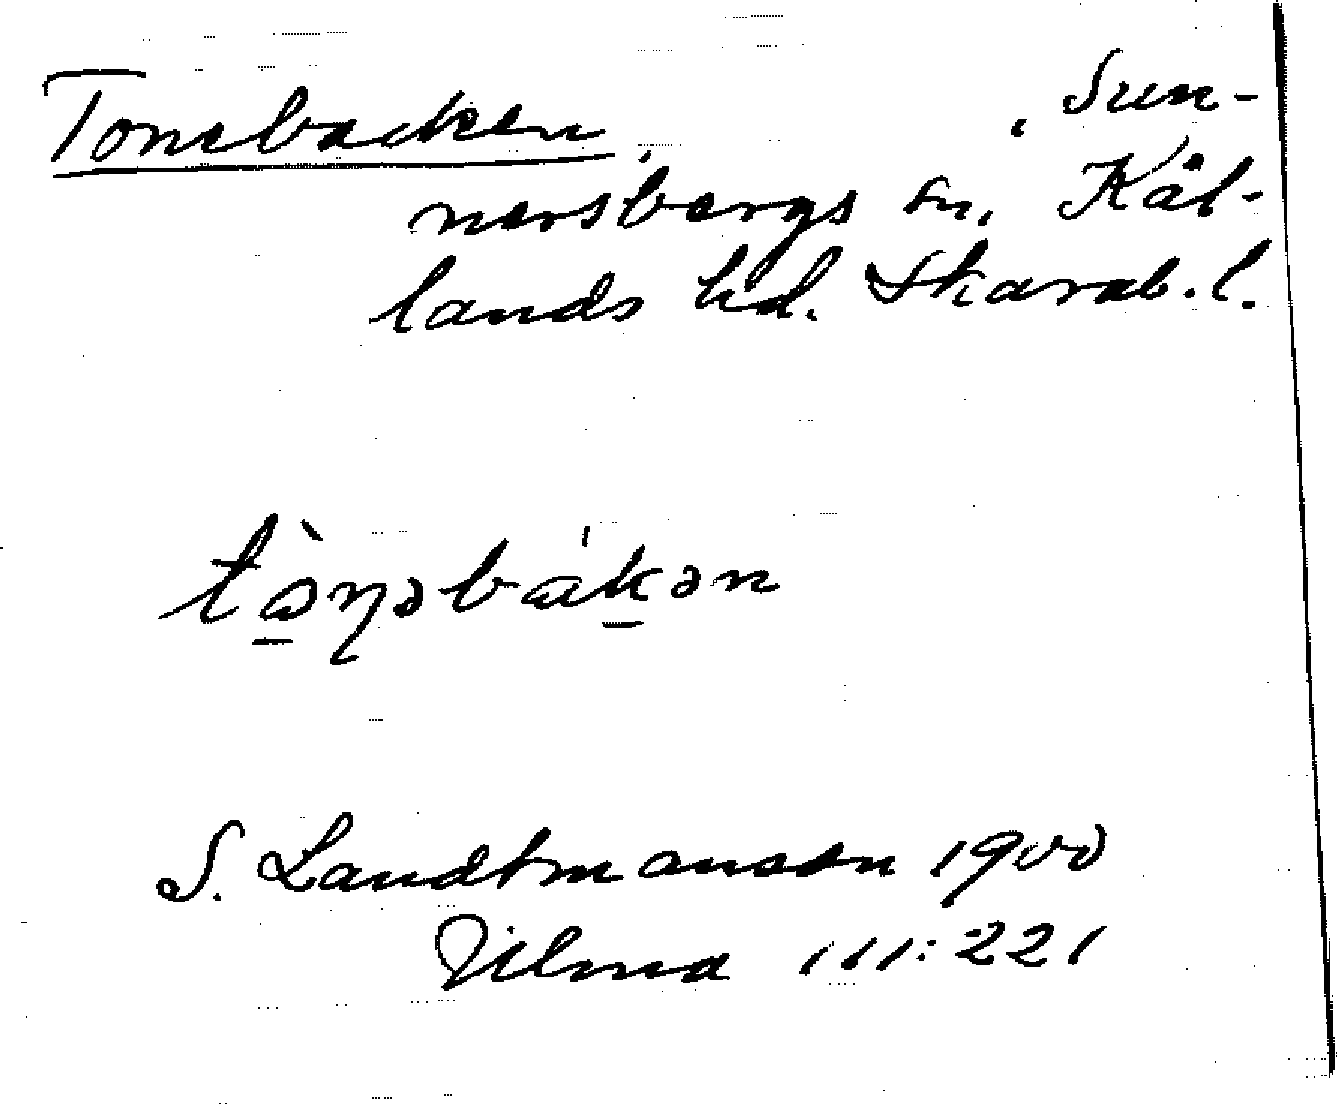 Tonebacken, i Sun-
nersbergs sn, Kål-
lands hd. Skarab. l.
tò̱ŋəbák̲ən
S. Landtmanson 1900
Ulma 111:221